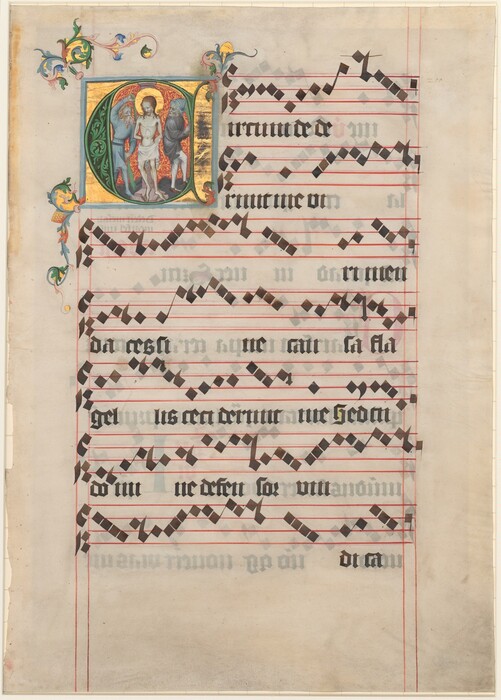 Circum de de
runt me vi
ri men
da cessi ne cau sa fla
gel lis ceci derunt me Sed tu
do mi ne defen sor vin
di ca